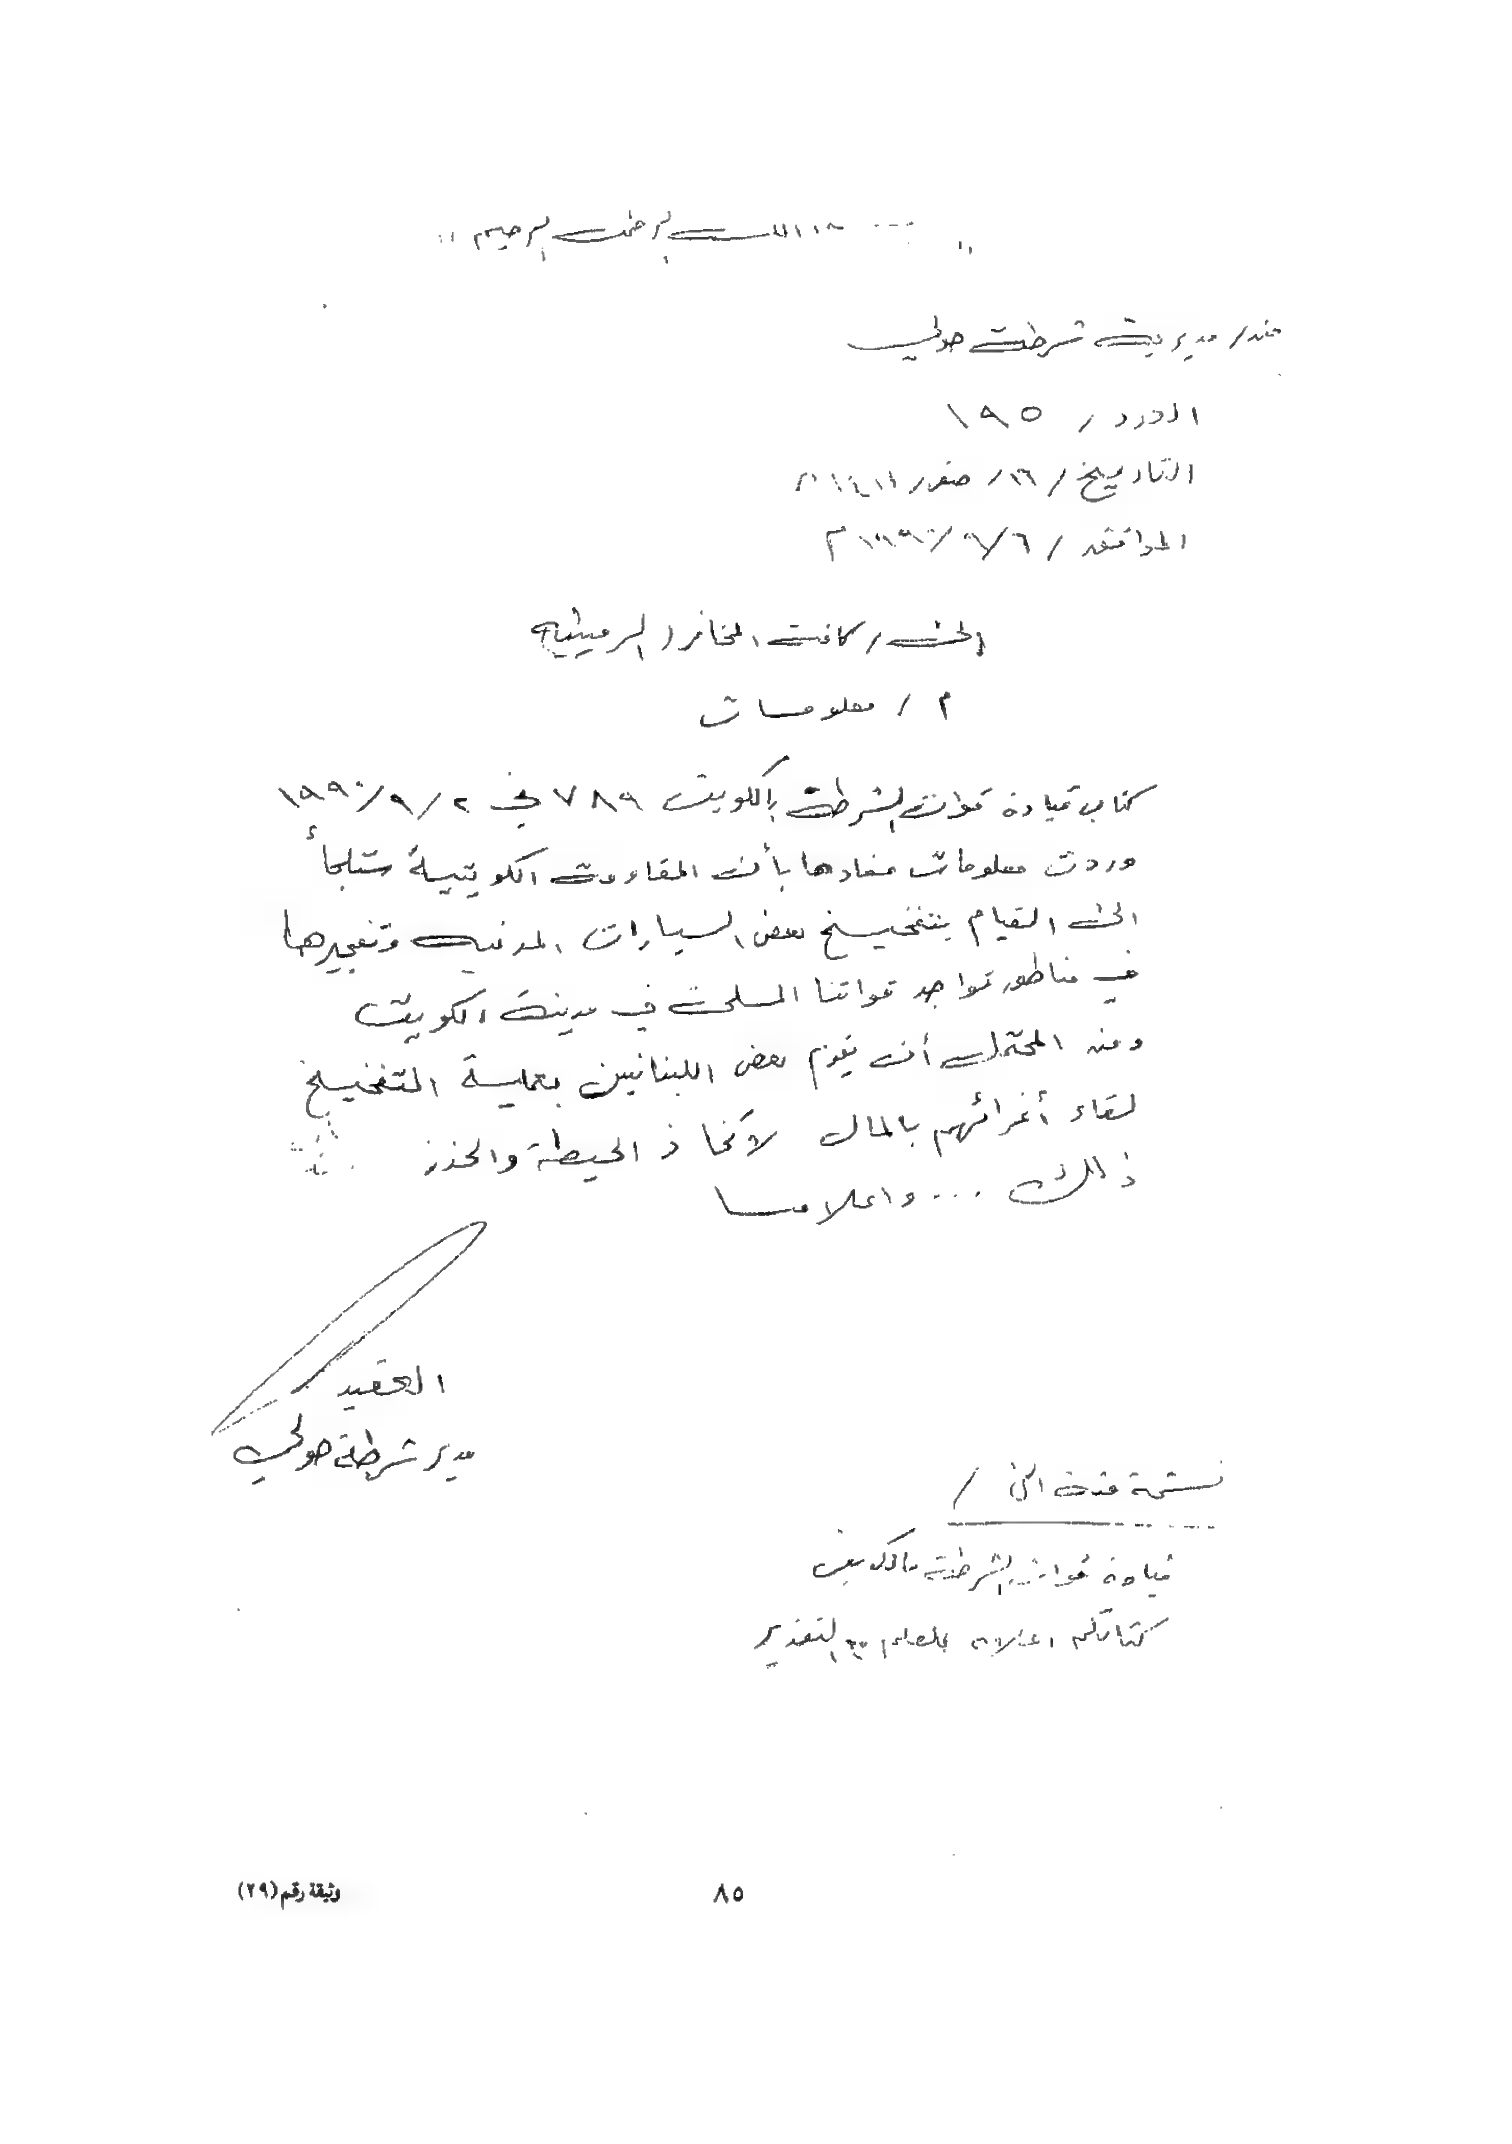 " بسم الله الرحمن الرحيم "
من/ مديرية شرطة حولي
العدد/ ١٩٥
التاريخ/ ١٦/ صفر/ ١٤١١هـ
الموافق/ ٦/٩/١٩٩٠م
الى/ كافة المخافر/ الرميثية
م / معلومات
كتاب قيادة قوات الشرطة بالكويت ٧٨٩ في ٢/٩/١٩٩٠
وردت معلومات مفادها بأن المقاومة الكويتية ستلجأ
الى القيام بتفخيخ بعض السيارات المدنية وتفجيرها
في مناطق تواجد قواتنا المسلحة في مدينة الكويت
ومن المحتمل أن يقوم بعض اللبنانين بعملية التفخيخ
لقاء أغرائهم بالمال لأتخاذ الحيطة والحذر
ذلك ... واعلامنا
العقيد
مدير شرطة حولي
نسخة منه الى /
قيادة قوات الشرطة بالكويت
كتابكم اعلاه للعلم مع التقدير
٨٥
وثيقة رقم (٢٩)